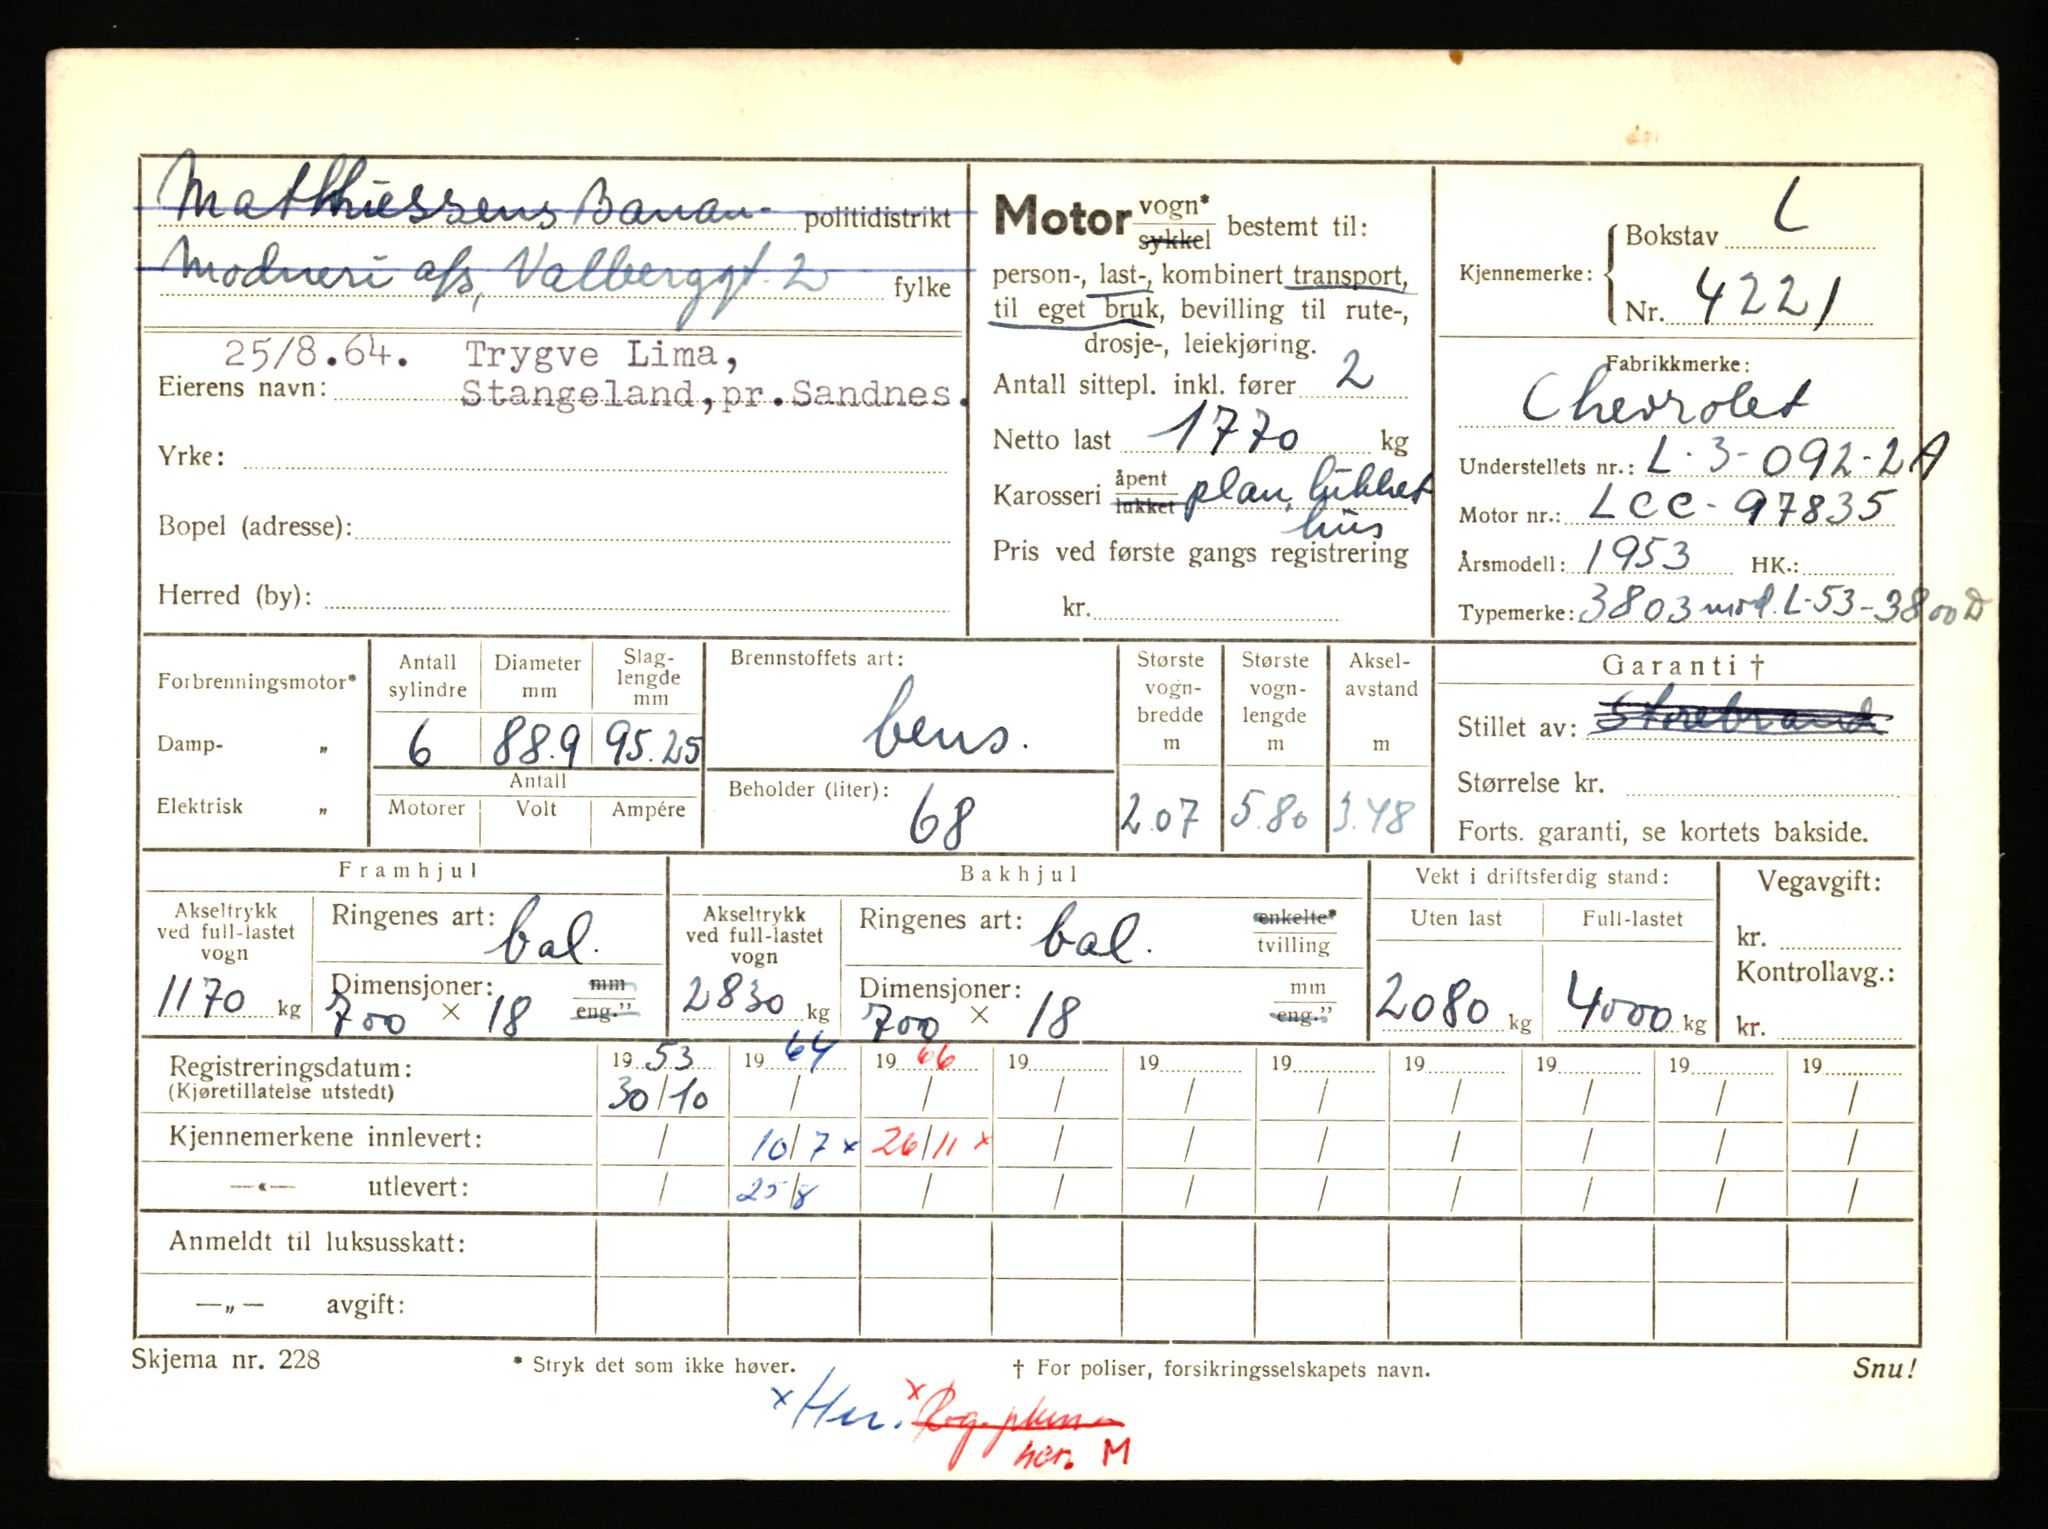 Matthiessens Banan- politidistrikt
Modneri a/s, Valberggt. 2 fylke
25/8.64. Trygve Lima,
Eierens navn: Stangeland, pr. Sandnes.
Yrke:
Bopel (adresse):
Herred (by):
Motor vogn* sykkel bestemt til:
person-, last-, kombinert transport,
til eget bruk, bevilling til rute-,
drosje-, leiekjøring.
Antall sittepl. inkl. fører 2
Netto last 1770 kg
Karosseri åpent lukket plan, lukket
hus
Pris ved første gangs registrering
kr.
Kjennemerke: Bokstav L
Nr. 4221
Fabrikkmerke:
Chevrolet
Understellets nr.: L-3-092-2A
Motor nr.: LCC-97835
Årsmodell: 1953 HK.:
Typemerke: 3803 mod. L-53-3800 D
Forbrenningsmotor*
Damp- „
Elektrisk „
Antall sylindre
6
Diameter mm
88.9
Slag-lengde mm
95.25
Antall
Motorer Volt Ampére
Brennstoffets art:
bens.
Beholder (liter):
68
Største vogn-bredde m
2.07
Største vogn-lengde m
5.80
Aksel-avstand m
3.48
Garanti †
Stillet av: Storebrand
Størrelse kr.
Forts. garanti, se kortets bakside.
Framhjul
Akseltrykk ved full-lastet vogn
1170 kg
Ringenes art: bal.
Dimensjoner: mm eng."
700 × 18
Bakhjul
Akseltrykk ved full-lastet vogn
2830 kg
Ringenes art: bal. enkelte* tvilling
Dimensjoner: mm eng."
700 × 18
Vekt i driftsferdig stand:
Uten last Full-lastet
2080 kg 4000 kg
Vegavgift:
kr.
Kontrollavg.:
kr.
Registreringsdatum: 19 53 19 64 19 66 19 19 19 19 19 19 19
(Kjøretillatelse utstedt) 30/10 / / / / / / / / /
Kjennemerkene innlevert: / 10/7 x 26/11 x / / / / / / /
—«— utlevert: / 25/8 / / / / / / / /
Anmeldt til luksusskatt:
—„— avgift:
Skjema nr. 228 * Stryk det som ikke høver. † For poliser, forsikringsselskapets navn. Snu!
x Her. x
her. M